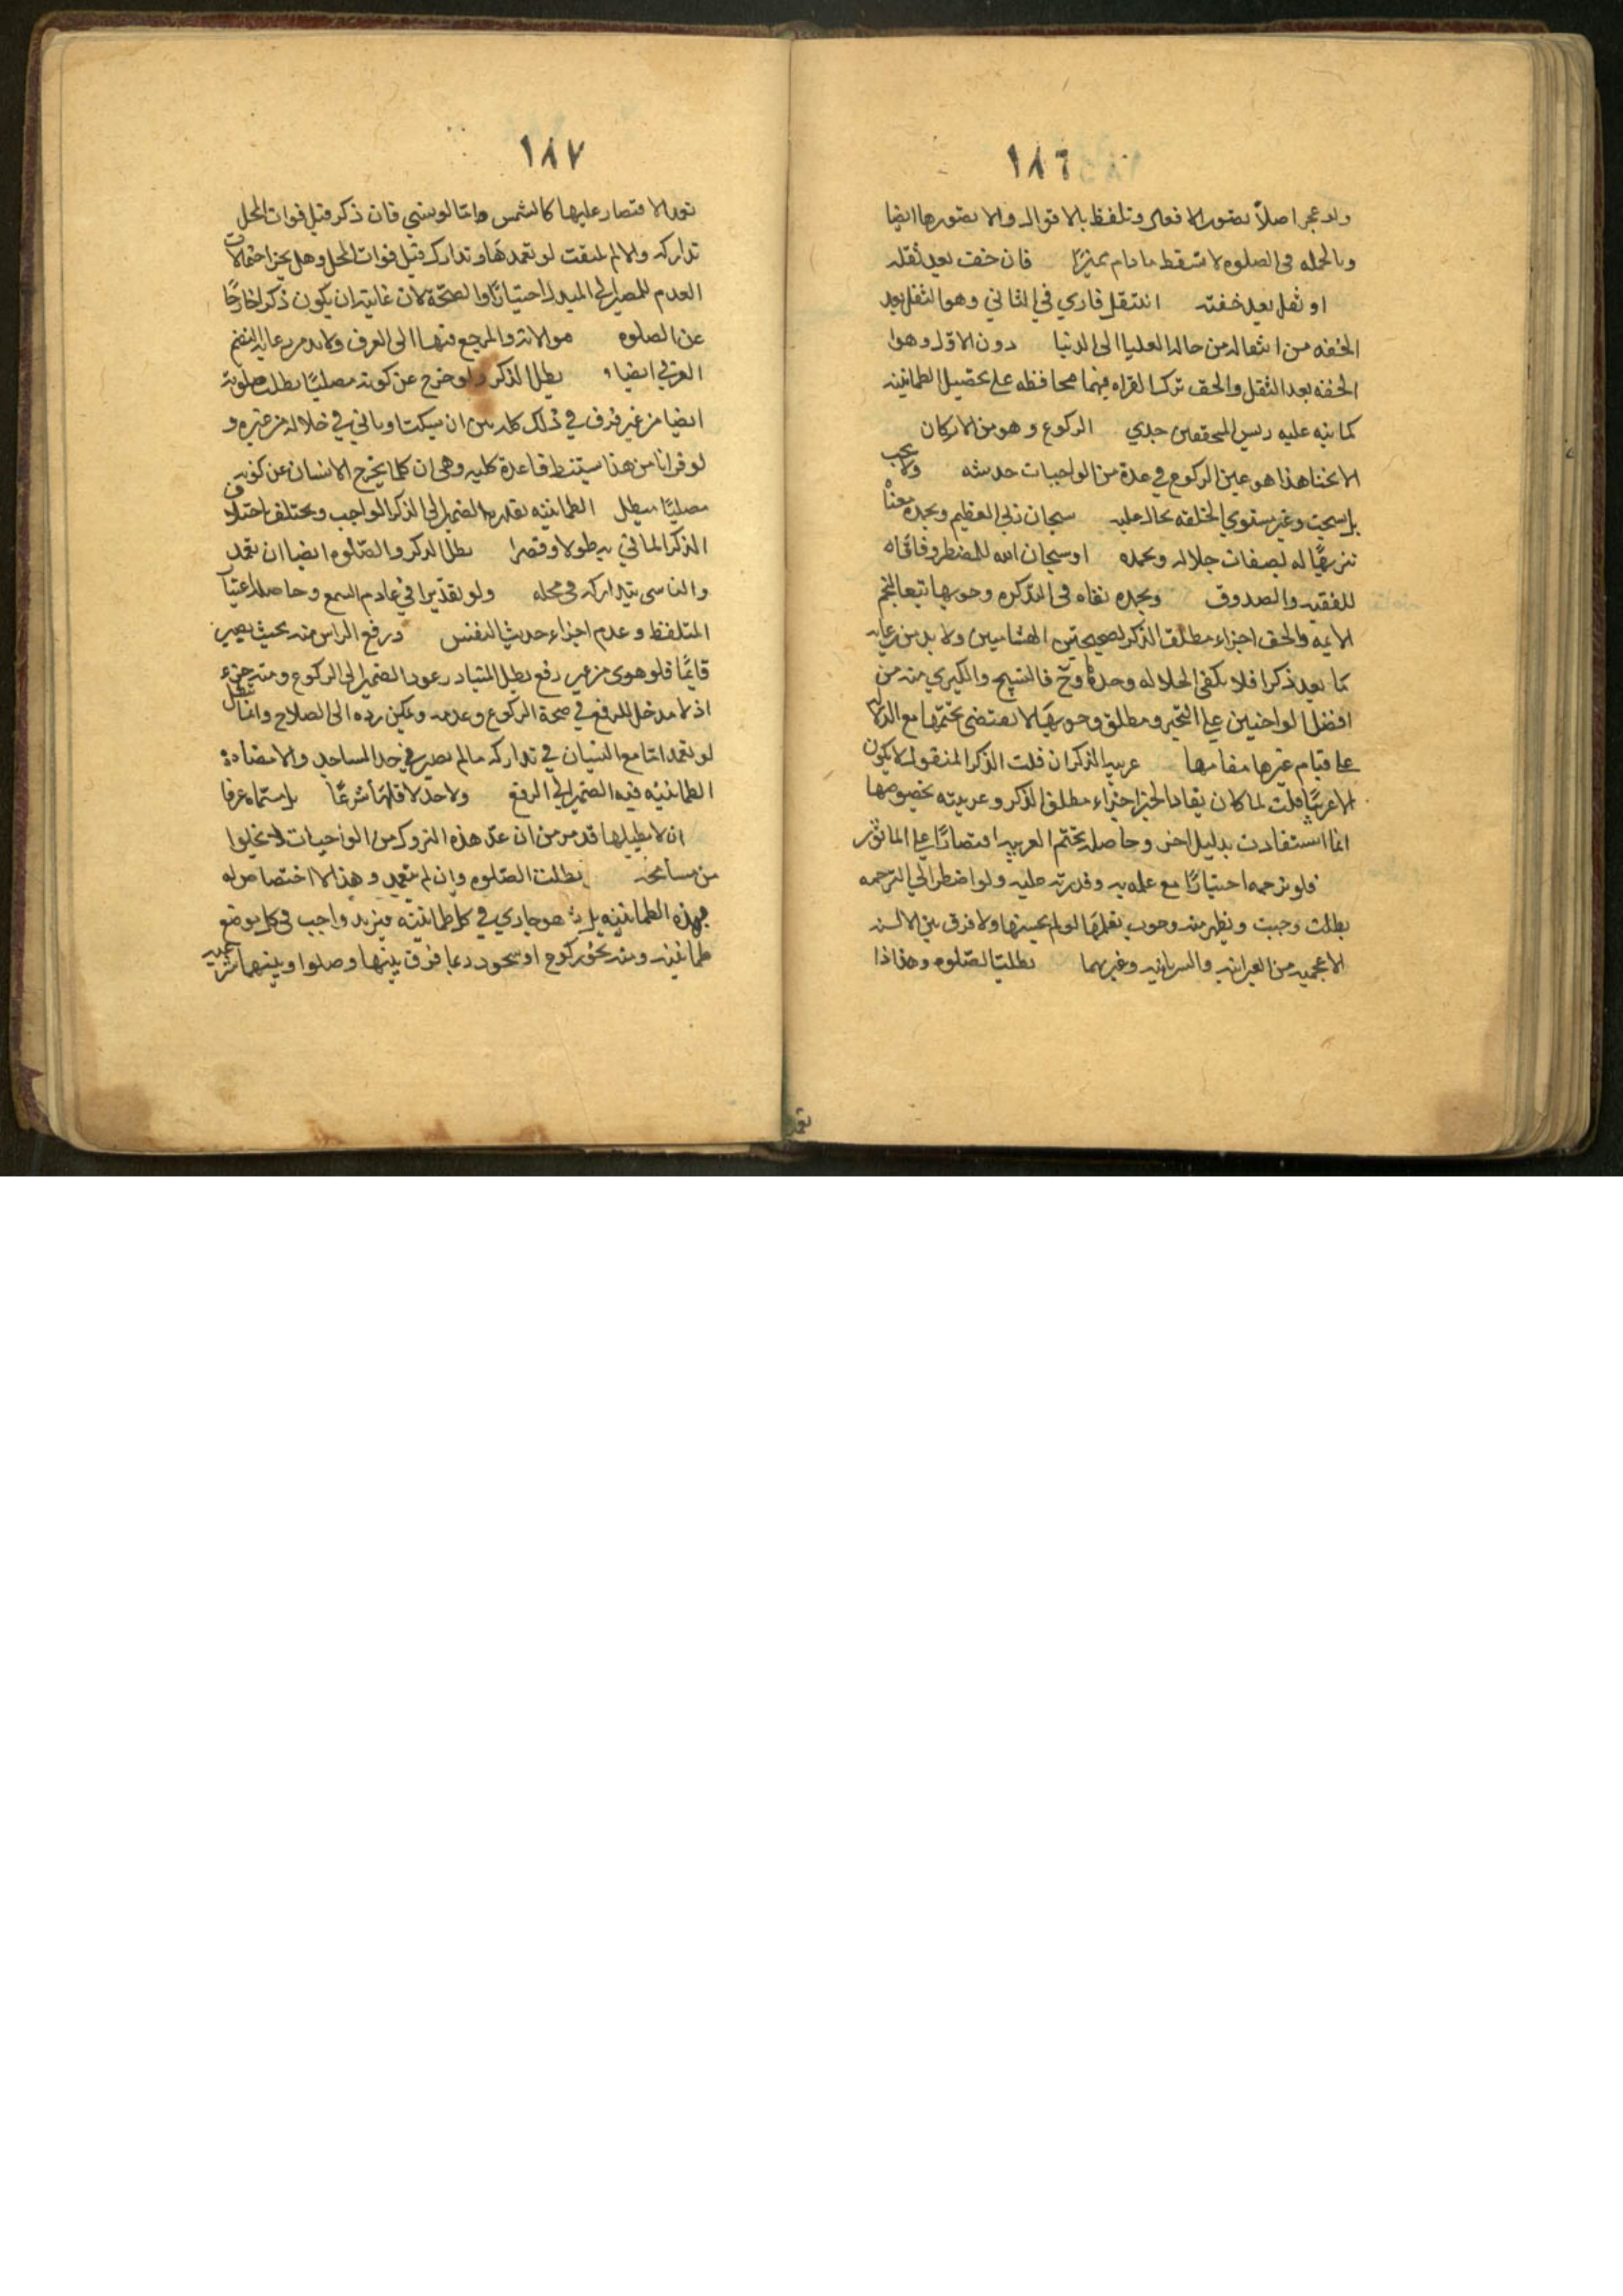 ١٨٦
ولو عجز اصلاً تصور الافعال وتلفظ بالاقوال والا تصورها ايضا
وبالجمله فى الصلوه لا تسقط ما دام مميزًا فان خف بعد ثقله
او ثقل بعد خفته انتقل قاري في الثاني وهو الثقل بعد
الخفه من انتقاله من حاله العليا الى الدنيا دون الاوّل وهو
الخفه بعد الثقل والحق ترك القراه فيهما محافظه على تحصيل الطمانينه
كما نبه عليه رييس المحققين جدي الركوع وهو من الاركان
الانحنا هذا هو عين الركوع في عدة من الواجبات ولا يجب
سبحان ربي العظيم وبحمده معناه
تنزيهًا له بصفات جلاله وبحمده او سبحان الله للمضطر وفاقاه
للفقيه والصدوق وبحمده نفاه فى التذكره وجوبها تبعا
الايمه والحق اجزاء مطلق الذكر لصحيحتين الهشامين ولا بد من رعايه
ما يعد ذكرا فلا يكفى الجلاله وحدها وح فالتسبيح والكبري منه من
افضل الواجبين على التخير ومطلق وجوبها لا يقتضى تحتمها مع
على قيام غيرها مقامها عربيه الذكر ان قلت الذكر المنقول لا يكون
الا عربيًا قلت لما كان يفاد الخبر اجزاء مطلق الذكر وعربيته بخصوصها
انما استفادت بدليل اخر وحاصله تحتم العربيه اقتصارًا على الماثور
فلو ترجمه اختيارًا مع علمه به وقدرته عليه ولو اضطر الى الترجمه
بطلت وجبت ويظهر منه وجوب تعلمها لو لم يحسنها ولا فرق بين الالسنه
الاعجميه من العبرانيه والسريانيه وغيرهما بطلت الصّلوه وهذا اذا
١٨٧
تعمد الاقتصار عليها كالشمس وامّا لو نسي فان ذكر قبل فوات المحل
تداركه والا لم يلتفت لو تعمدها وتدارك قبل فوات المحل وهل يجزا احتمالات
العدم للمصير الى المبدل اختيارًا والصحّة لان غايته ان يكون ذكرا خارجًا
عن الصلوه موالاته والمرجع فيها الى العرف ولا بد من رعايه النظم
العربي ايضا بطل الذكر ولو خرج عن كونه مصليًا بطلت صلوته
ايضا من غير فرق في ذلك كله بين ان يسكت او ياتي في خلاله من خبره و
لو قرانا من هنا يستنبط قاعدة كليه وهى ان كلما يخرج الانسان عن كونه
مصليًا مبطل الطمانينه بقدره الضمير الى الذكر الواجب ويختلف باختلاف
الذكر الماتي به طولا وقصرا بطل الذكر والصّلوه ايضا ان تعمد
والناسى يتداركه فى محله ولو تقديرا في عادم السمع وحاصله
التلفظ وعدم اجزاء حديث النفس ورفع الراس منه بحيث يصير
قايمًا فلو هوى من غير رفع بطل المتبادر عود الضمير الى الركوع ومنه
اذ لا مدخل للرفع في صحة الركوع وعدمه ويمكن رده الى الصلاح وانما تبطل
لو تعمد امّا مع النسيان في تداركه ما لم يصير في حد الساجد والا
الطمانينه فيه الضمير الى الرفع ولا حد لاقلها شرعًا بل مسماه عرفا
ان لا يطيلها قد مر من ان عدّ هذه التروك من الواجبات لا تخلوا
من مسامحه بطلت الصّلوه وان لم يتعمد وهذا لا اختصاص له
بهذه الطمانينه بل هو جاري في كل طمانينه فيزيد واجب فى كل موضع
طمانينه ومنه نحو ركوع او سجود دعا فرق بينها